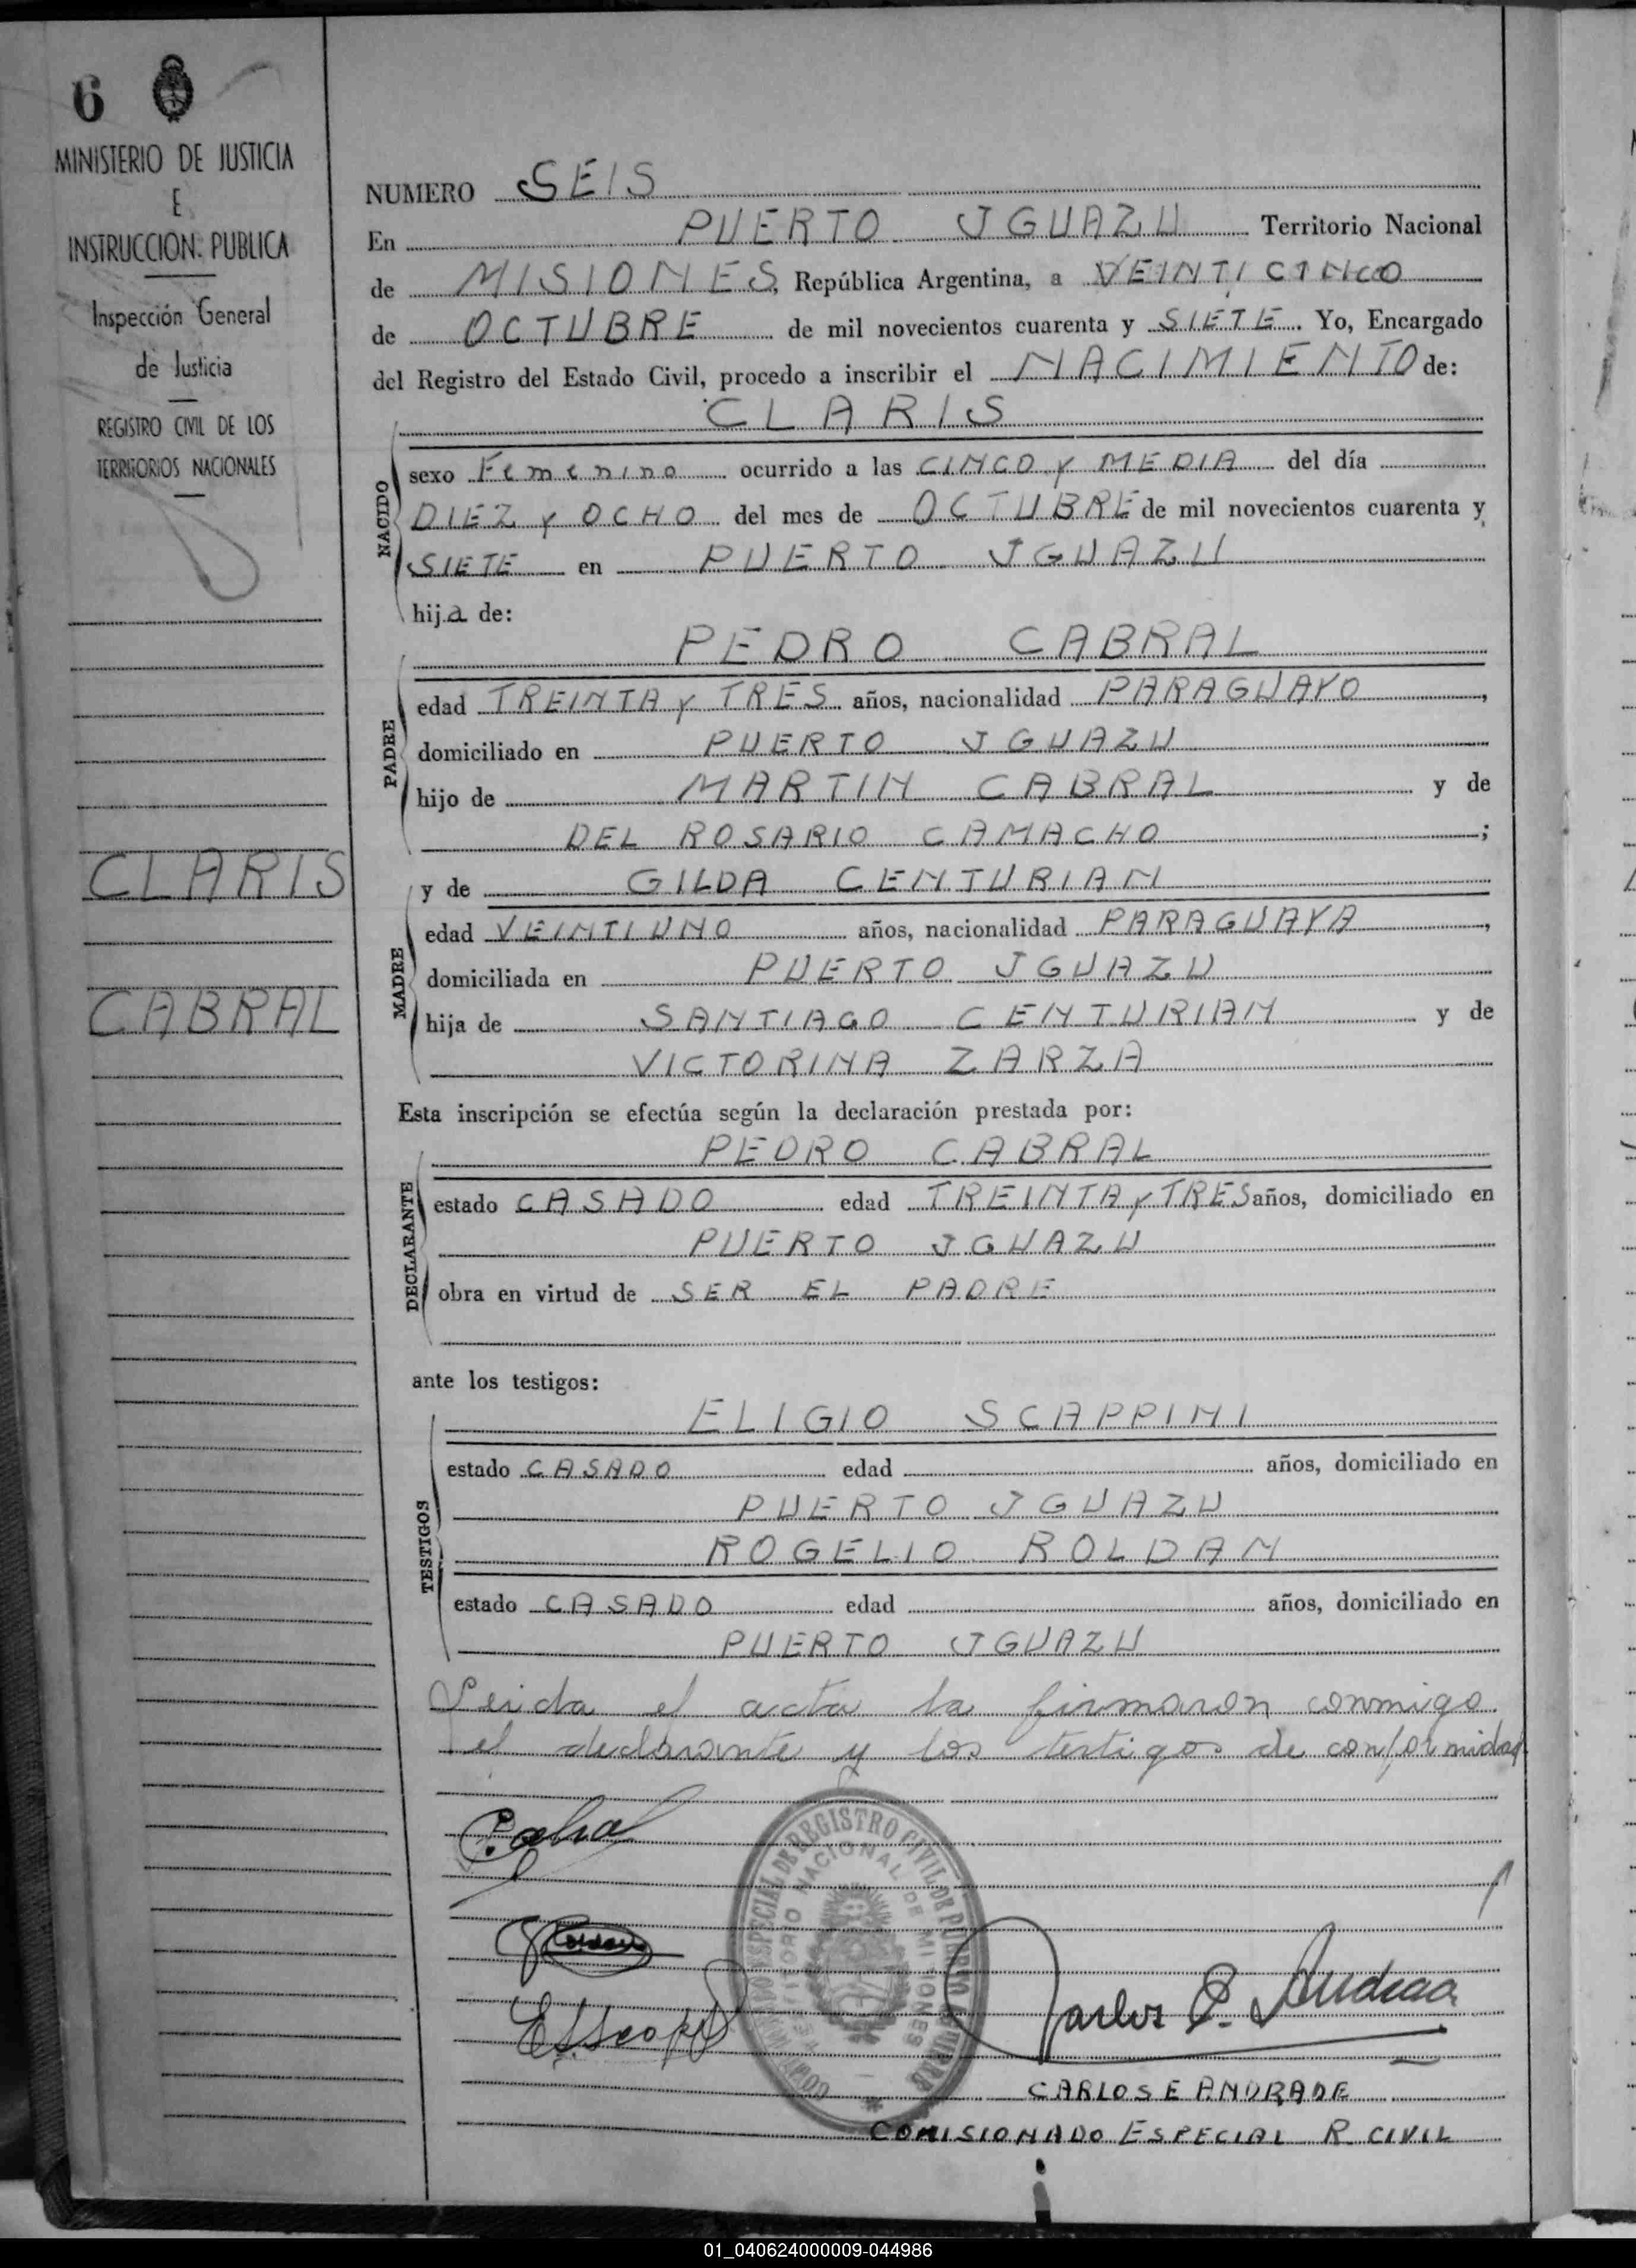 6
MINISTERIO DE JUSTICIA
E
INSTRUCCION PUBLICA
Inspección General
de Justicia
REGISTRO CIVIL DE LOS
TERRITORIOS NACIONALES
CLARIS
CABRAL
NUMERO SEIS
En PUERTO IGUAZU Territorio Nacional
de MISIONES, República Argentina, a VEINTICINCO
de OCTUBRE de mil novecientos cuarenta y SIETE. Yo, Encargado
del Registro del Estado Civil, procedo a inscribir el NACIMIENTO de:
CLARIS
NACIDO
sexo Femenino ocurrido a las CINCO y MEDIA del día
DIEZ y OCHO del mes de OCTUBRE de mil novecientos cuarenta y
SIETE en PUERTO IGUAZU
hija de:
PEDRO CABRAL
PADRE
edad TREINTA y TRES años, nacionalidad PARAGUAYO,
domiciliado en PUERTO IGUAZU
hijo de MARTIN CABRAL y de
DEL ROSARIO CAMACHO;
y de GILDA CENTURIAN
MADRE
edad VEINTIUNO años, nacionalidad PARAGUAYA,
domiciliada en PUERTO IGUAZU
hija de SANTIAGO CENTURIAN y de
VICTORINA ZARZA
Esta inscripción se efectúa según la declaración prestada por:
PEDRO CABRAL
DECLARANTE
estado CASADO edad TREINTA y TRES años, domiciliado en
PUERTO IGUAZU
obra en virtud de SER EL PADRE
ante los testigos:
ELIGIO SCAPPINI
TESTIGOS
estado CASADO edad años, domiciliado en
PUERTO IGUAZU
ROGELIO ROLDAN
estado CASADO edad años, domiciliado en
PUERTO IGUAZU
Leida el acta la firmaron conmigo
el declarante y los testigos de conformidad
P. Cabral
REGISTRO CIVIL DE
NACIONAL DE MISIONES
Carlos E. Andrade
CARLOS E ANDRADE
COMISIONADO ESPECIAL R. CIVIL
01_040624000009-044986